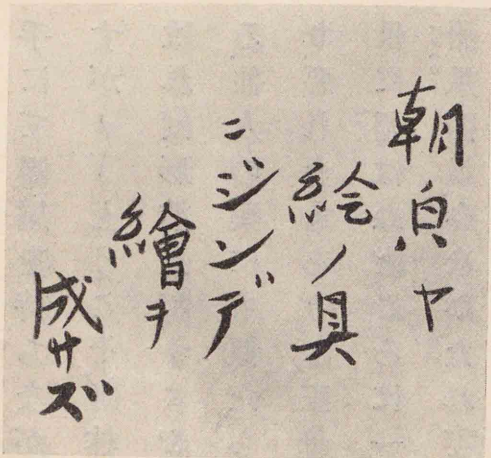 朝皃ヤ
絵ノ具
ニジンデ
繪ヲ
成サズ